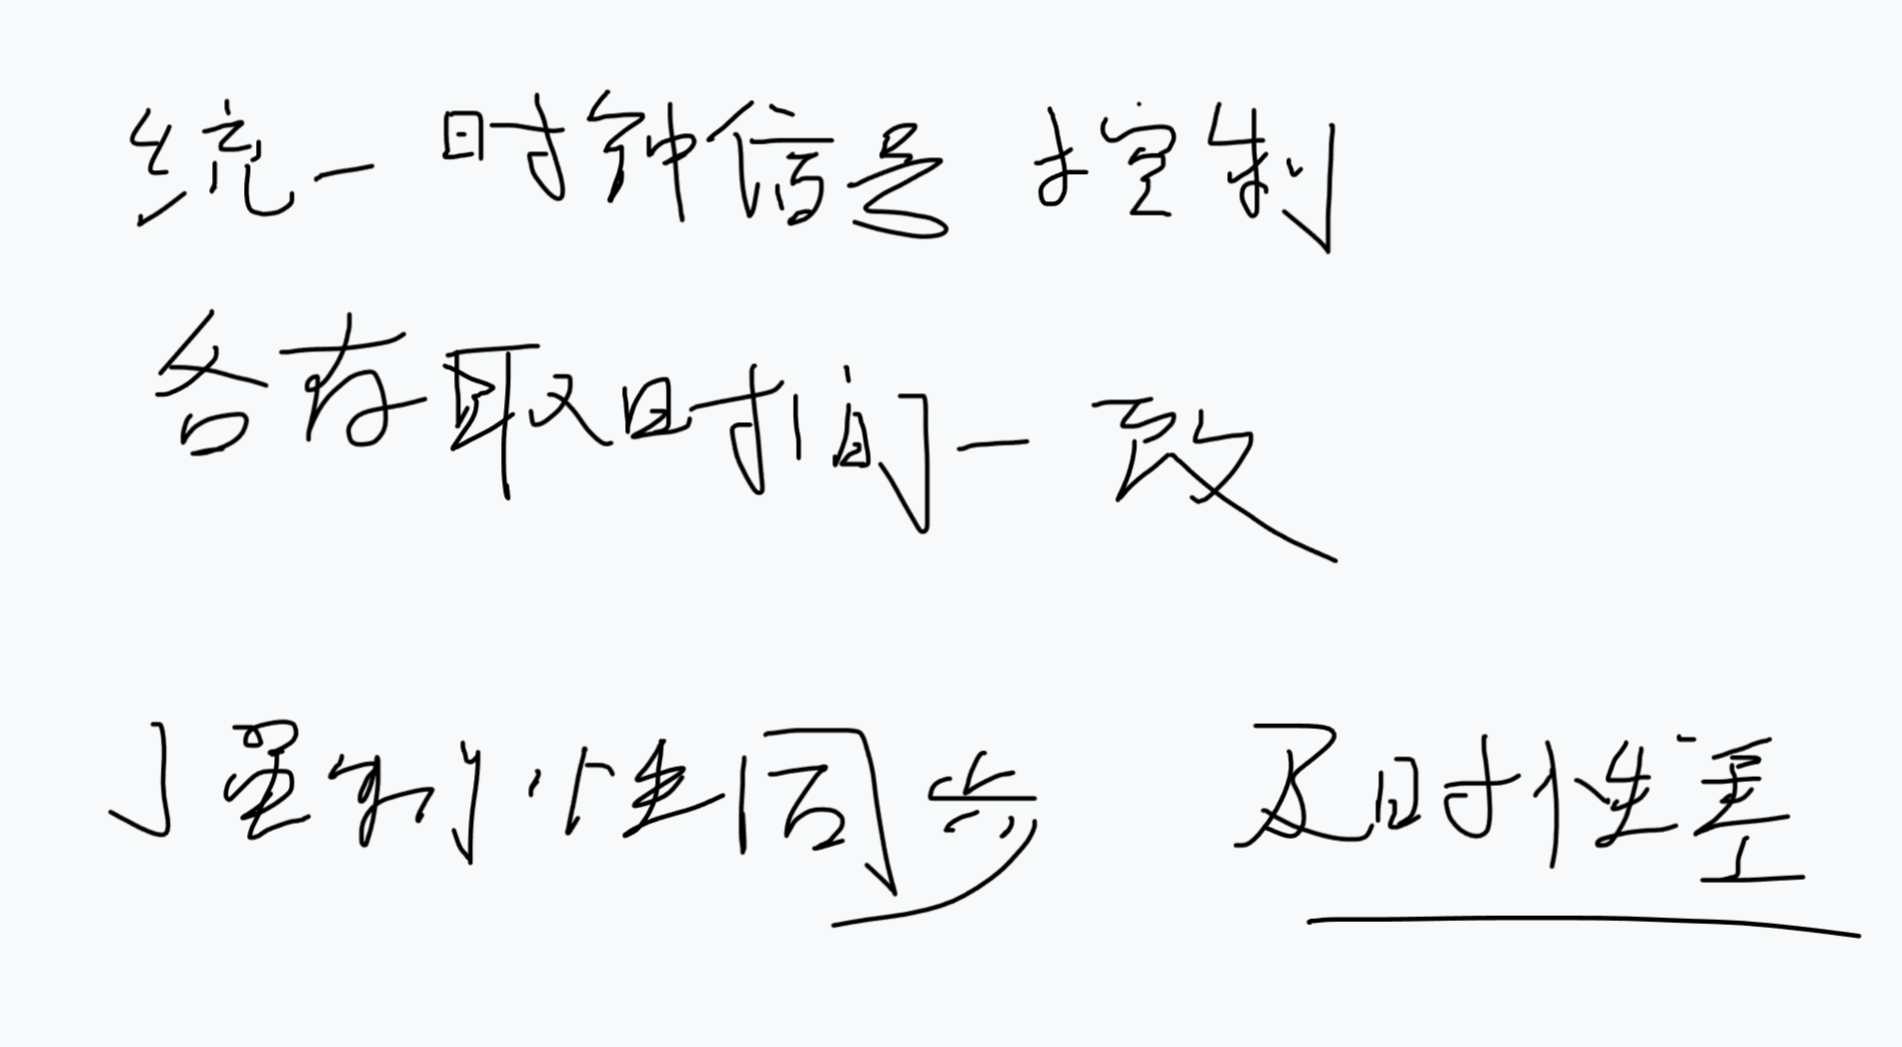 统一时钟信号控制
各存取时间一致
强制性同步 及时性差